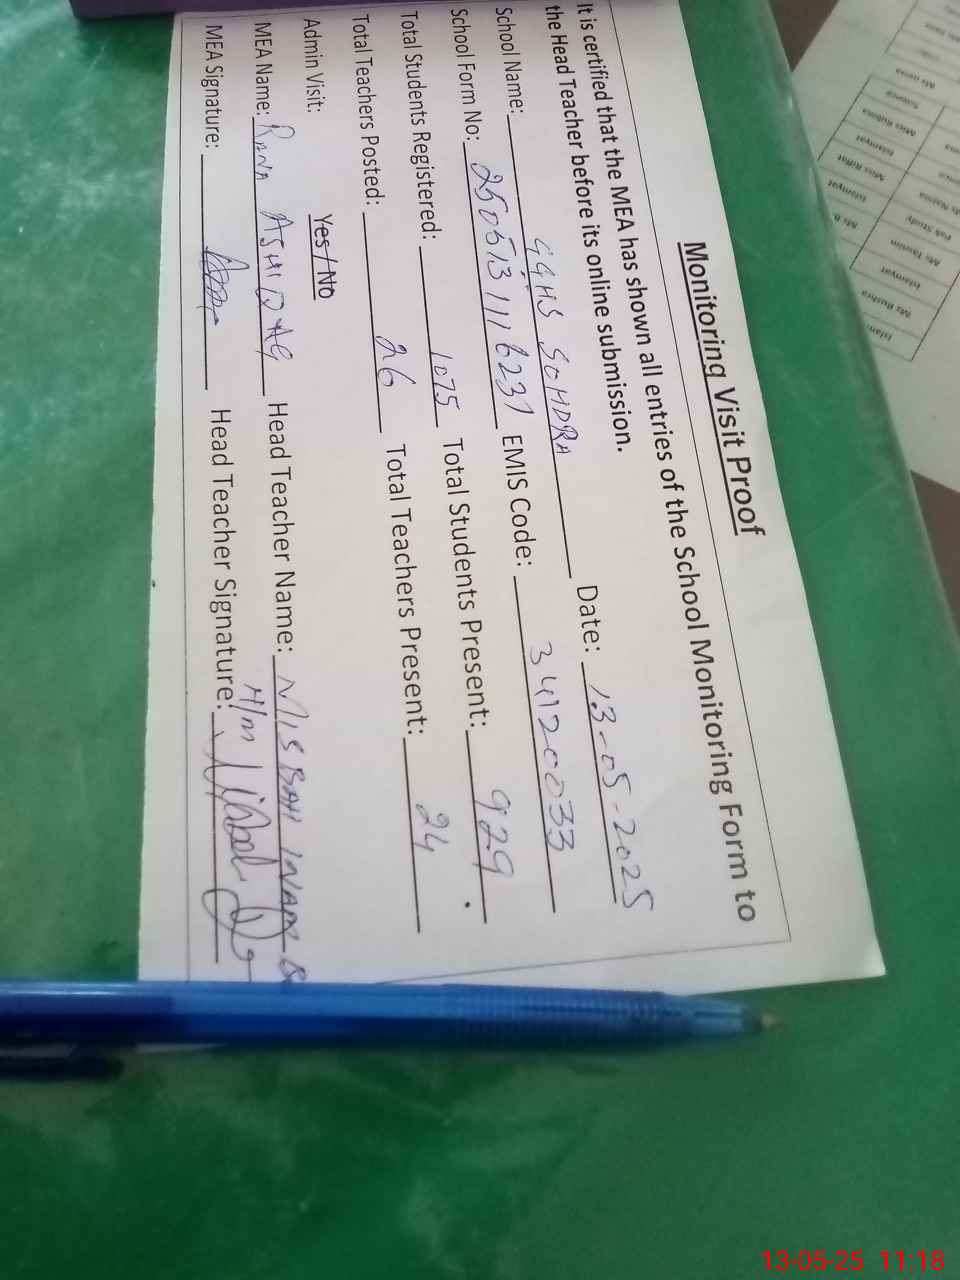 Monitoring Visit Proof
It is certified that the MEA has shown all entries of the School Monitoring Form to
the Head Teacher before its online submission.
School Name: GGHS SOHDRA Date: 13-05-2025
School Form No: 2505131116231 EMIS Code: 34120033
Total Students Registered: 1075 Total Students Present: 929
Total Teachers Posted: 26 Total Teachers Present: 24
Admin Visit: Yes / No
MEA Name: RANA ASHIQ Head Teacher Name: MISBAH
MEA Signature: Head Teacher Signature:
H/m
Islamyat
Miss Riffat
Islamyat
Miss Rubina
Science
Pak Study
Islamyat
Ms Bushra
13-05-25 11:18